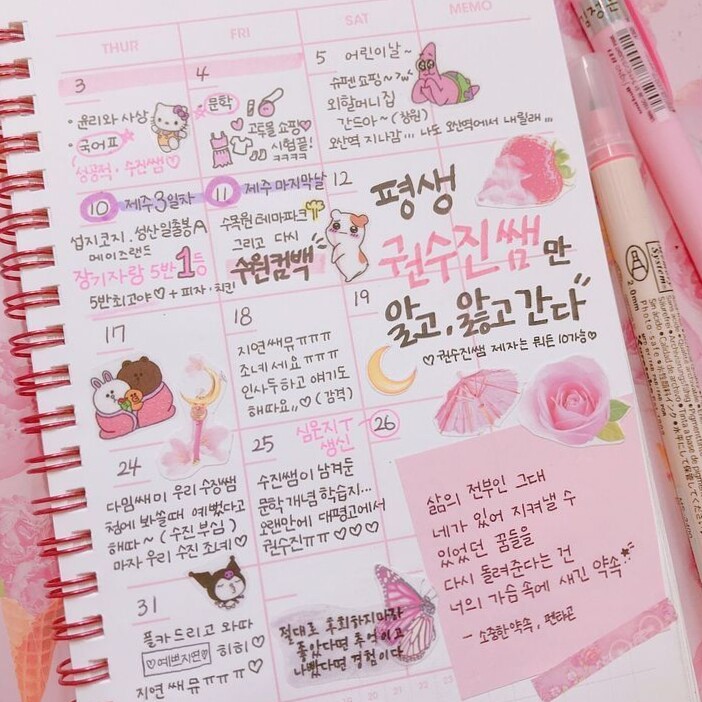 THUR
FRI
SAT
MEMO
3
• 윤리와 사상
• 국어 II
(성공적 · 수진쌤♡
4
문학
고두물 쇼핑♡
시험끝!
ㅋㅋㅋㅋ
5 어린이날~
슈펜 쇼핑~
외할머니집
간드아~ (창원)
오산역 지나감... 나도 오산역에서 내릴래...
10 제주 3일차
섭지코지. 성산일출봉
메이즈랜드
장기자랑 5반 1등
5반최고야♡ + 피자, 치킨
11 제주 마지막날
수목원 테마파크
그리고 다시
수원컴백
12
평생
권수진쌤만
알고, 앓고 간다
♡ 권수진쌤 제자는 뭐든 10가능♡
17
18
지연쌔뮤ㅠㅠㅠ
소녀세요ㅠㅠㅠ
인사두하고 얘기도
해따요,,♡♡ (감격)
19
24
다임쌔미 우리 수장쌤
첨에 봐쓸때 예뻤다고
해따~ (수진부심)
마자 우리 수진 소녜♡
25
심은지T
생신
26
수진쌤이 남겨둔
문학 개념 학습지...
오랜만에 대평고에서
권수진ㅠㅠ♡♡♡
31
플카드리고 와따
♡예쁘지연♡ 히히♡
지연쌔뮤ㅠㅠㅠ♡
절대로 후회하지마라
좋았다면 추억이고
나빴다면 경험이다
삶의 전부인 그대
네가 있어 지켜낼 수
있었던 꿈들을
다시 돌려준다는 건
너의 가슴 속에 새긴 약속
- 소중한 약속, 펀타곤
System
2.0mm